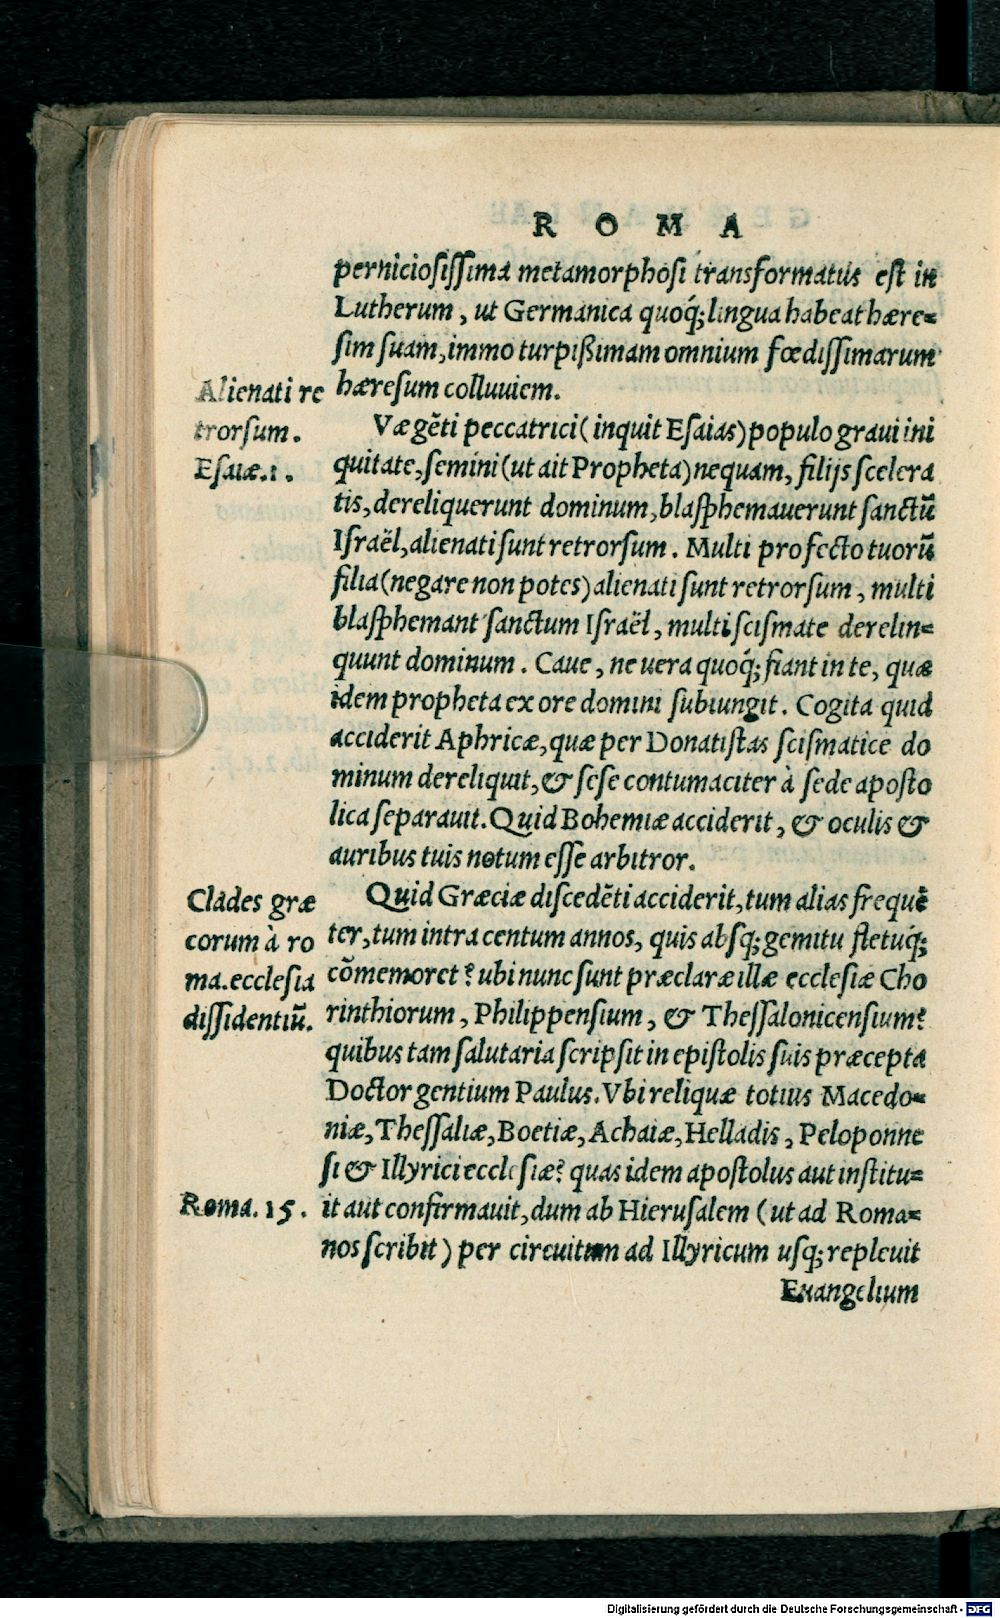 ROMA
perniciosissima metamorphosi transformatus est in
Lutherum, ut Germanica quoq́; lingua habeat hære=
sim suam, immo turpißimam omnium fœdissimarum
hæresum colluuiem.
Alienati re
trorsum.
Esaiæ.1.
Væ gẽti peccatrici (inquit Esaias) populo graui ini
quitate, semini (ut ait Propheta) nequam, filijs scelera
tis, dereliquerunt dominum, blasphemauerunt sanctũ
Israël, alienati sunt retrorsum. Multi profecto tuorũ
filia (negare non potes) alienati sunt retrorsum, multi
blasphemant sanctum Israël, multi scismate derelin=
quunt dominum. Caue, ne uera quoq́; fiant in te, quæ
idem propheta ex ore domini subiungit. Cogita quid
acciderit Aphricæ, quæ per Donatistas scismatice do
minum dereliquit, & sese contumaciter à sede aposto
lica separauit. Quid Bohemiæ acciderit, & oculis &
auribus tuis notum esse arbitror.
Clades græ
corum à ro
ma.ecclesia
dissidentiũ.
Quid Græciæ discedẽti acciderit, tum alias frequẽ
ter, tum intra centum annos, quis absq; gemitu fletuq́;
cõmemoret? ubi nunc sunt præclaræ illæ ecclesiæ Cho
rinthiorum, Philippensium, & Thessalonicensium?
quibus tam salutaria scripsit in epistolis suis præcepta
Doctor gentium Paulus. Vbi reliquæ totius Macedo=
niæ, Thessaliæ, Boetiæ, Achaiæ, Helladis, Peloponne
si & Illyrici ecclesiæ? quas idem apostolus aut institu=
Roma.15.
it aut confirmauit, dum ab Hierusalem (ut ad Roma=
nos scribit) per circuitum ad Illyricum usq; repleuit
Euangelium
Digitalisierung gefördert durch die Deutsche Forschungsgemeinschaft - DFG